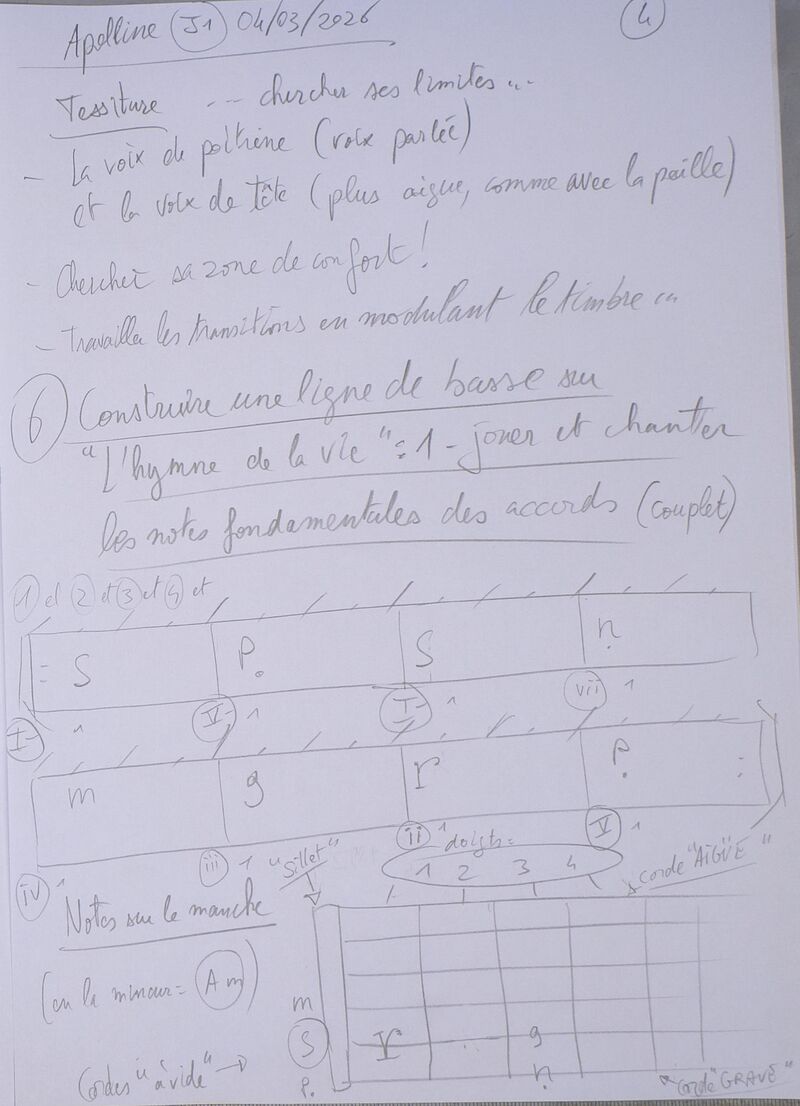 Apolline J1 04/03/2026
4
Tessiture --- chercher ses limites...
- La voix de poitrine (voix parlée)
et la voix de tête (plus aigue, comme avec la paille)
- Chercher sa zone de confort!
- Travailler les transitions en modulant le timbre...
6 Construire une ligne de basse sur
"L'hymne de la vie": 1- jouer et chanter
les notes fondamentales des accords (couplet)
1 et 2 et 3 et 4 et
: S P. S n.
I- 1 V- 1 I- 1 vii 1
m g r P. :
iv 1 iii 1 ii 1 V 1
"Sillet" doigts=
1 2 3 4
corde "AIGÜE"
Notes sur le manche
(en la mineur = Am)
m
S r g
Cordes "à vide" → P. n.
corde "GRAVE"